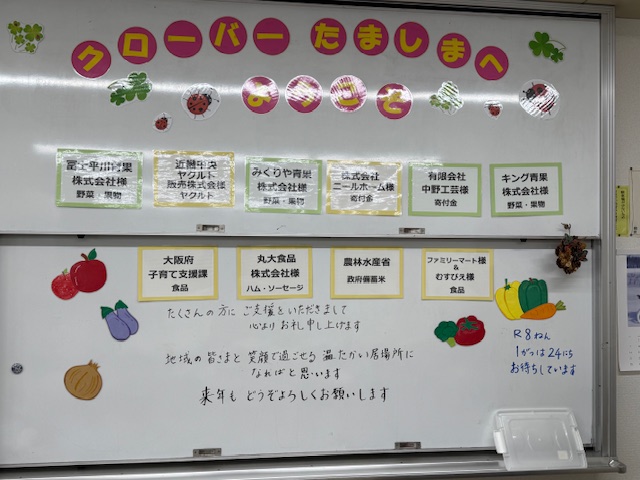 クローバーたましまへ
ようこそ
冨士平川青果
株式会社様
野菜・果物
近畿中央
ヤクルト
販売株式会社様
ヤクルト
みくりや青果
株式会社様
野菜・果物
株式会社
ニールホーム様
寄付金
有限会社
中野工芸様
寄付金
キング青果
株式会社様
野菜・果物
大阪府
子育て支援課
食品
丸大食品
株式会社様
ハム・ソーセージ
農林水産省
政府備蓄米
ファミリーマート様
&
むすびえ様
食品
たくさんの方に ご支援をいただきまして
心より お礼申し上げます
地域の皆さまと 笑顔で過ごせる 温たかい居場所に
なればと思います
来年も どうぞよろしくお願いします
R8ねん
1がつは24にち
お待ちしています